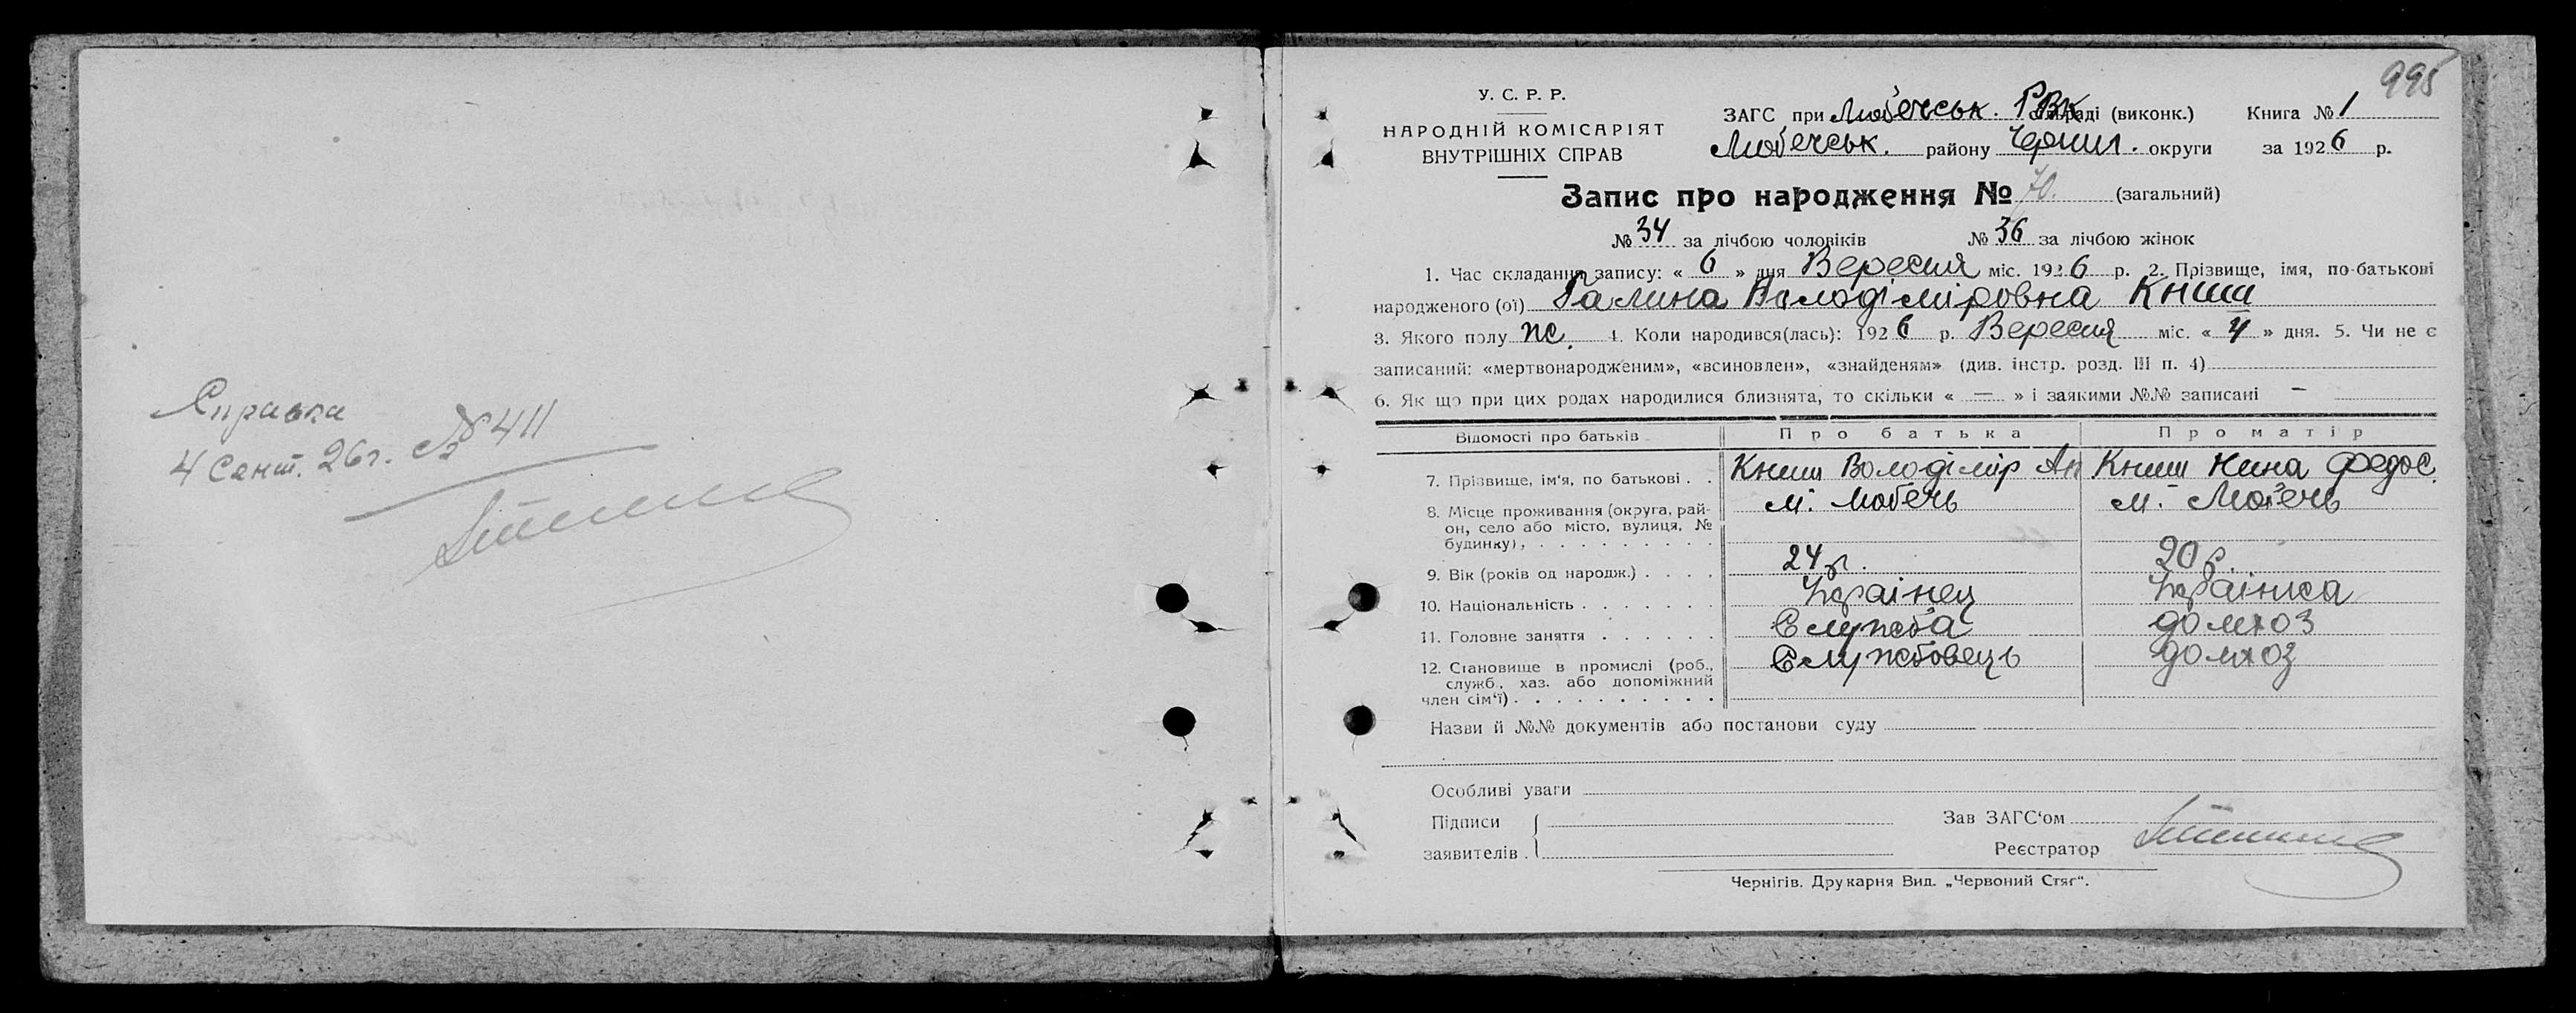 Справка
4 Сент. 26г. № 411
995
У. С. Р. Р.
НАРОДНІЙ КОМІСАРІЯТ
ВНУТРІШНІХ СПРАВ
ЗАГС при Любечськ. РВК раді (виконк.) Книга № 1
Любечськ. району Черниг. округи за 1926 р.
Запис про народження № 70. (загальний)
№ 34 за лічбою чоловіків № 36 за лічбою жінок
1. Час складання запису: « 6 » дня Вересня міс. 1926 р. 2. Прізвище, імя, по-батькові
народженого (ої) Галина Володіміровна Книш
3. Якого полу ж. 4. Коли народився(лась): 1926 р. Вересня міс. « 4 » дня. 5. Чи не є
записаний: «мертвонародженим», «всиновлен», «знайденям» (див. інстр. розд. III п. 4)
6. Як що при цих родах народилися близнята, то скільки « — » і заякими №№ записані —
Відомості про батьків Про батька Про матір
7. Прізвище, ім'я, по батькові . . Книш Володімір Ап Книш Нина Федос.
8. Місце проживання (округа, рай- м. Любечь м. Любечь
он, село або місто, вулиця, №
будинку), . . . . . . . . .
9. Вік (років од народж.) . . . . 24 р. 20 р.
10. Національність . . . . . . . Українец Українка
11. Головне заняття . . . . . . Служба домхоз
12. Становище в промислі (роб., Службовець домхоз
служб., хаз. або допоміжний
член сім'ї) . . . . . . . . . .
Назви й №№ документів або постанови суду
Особливі уваги
Підписи Зав ЗАГС'ом
заявителів . Реєстратор
Чернігів. Друкарня Вид. „Червоний Стяг".